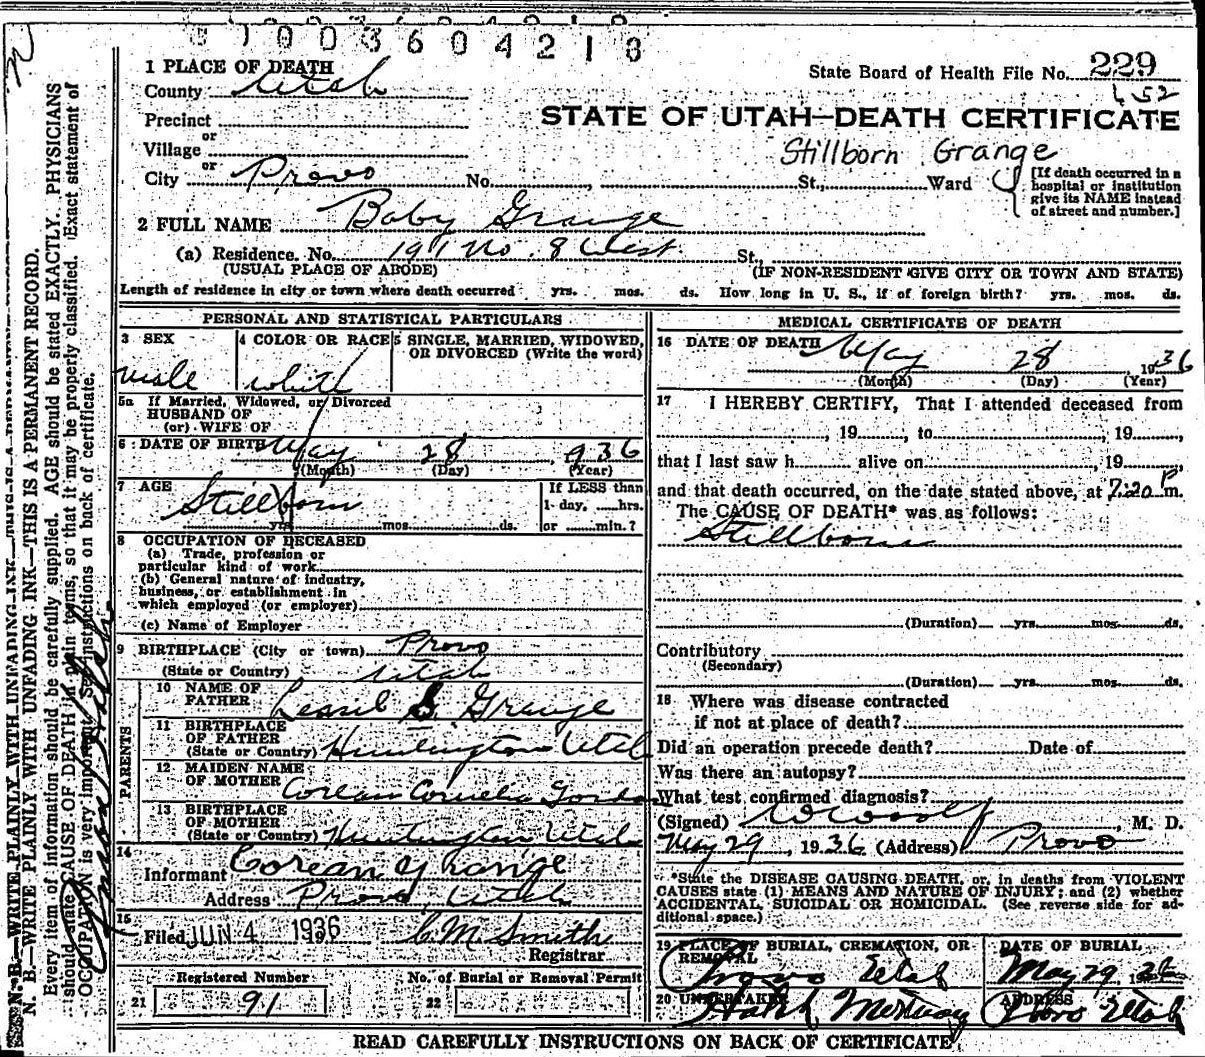 1003604218
1 PLACE OF DEATH
County Utah
State Board of Health File No. 229
452
STATE OF UTAH—DEATH CERTIFICATE
Precinct
or
Village
or
Stillborn Grange
City Provo No. , St., Ward
[If death occurred in a
hospital or institution
give its NAME instead
of street and number.]
2 FULL NAME Baby Grange
(a) Residence. No. 191 No. 8 West St.,
(USUAL PLACE OF ABODE) (IF NON-RESIDENT GIVE CITY OR TOWN AND STATE)
Length of residence in city or town where death occurred yrs. mos. ds. How long in U. S., if of foreign birth? yrs. mos. ds.
PERSONAL AND STATISTICAL PARTICULARS
3 SEX
male
4 COLOR OR RACE
white
5 SINGLE, MARRIED, WIDOWED,
OR DIVORCED (Write the word)
5a If Married, Widowed, or Divorced
HUSBAND OF
(or) WIFE OF
6 DATE OF BIRTH May 28, 1936
(Month) (Day) (Year)
7 AGE
Stillborn
yrs. mos. ds.
If LESS than
1 day, hrs.
or min.?
8 OCCUPATION OF DECEASED
(a) Trade, profession or
particular kind of work
(b) General nature of industry,
business, or establishment in
which employed (or employer)
(c) Name of Employer
9 BIRTHPLACE (City or town) Provo
(State or Country) Utah
PARENTS
10 NAME OF
FATHER Leanil S. Grange
11 BIRTHPLACE
OF FATHER
(State or Country) Huntington Utah
12 MAIDEN NAME
OF MOTHER Corean Cornelia Gordon
13 BIRTHPLACE
OF MOTHER
(State or Country) Huntington Utah
14
Informant Corean Grange
Address Provo, Utah
15
Filed JUN 4 1936 C M Smith
Registrar
Registered Number
21 91
No. of Burial or Removal Permit
22
MEDICAL CERTIFICATE OF DEATH
16 DATE OF DEATH May 28, 1936
(Month) (Day) (Year)
17 I HEREBY CERTIFY, That I attended deceased from
, 19 , to , 19 ,
that I last saw h alive on , 19 ,
and that death occurred, on the date stated above, at 7:20 P m.
The CAUSE OF DEATH* was as follows:
Stillborn
(Duration) yrs. mos. ds.
Contributory
(Secondary)
(Duration) yrs. mos. ds.
18 Where was disease contracted
if not at place of death?
Did an operation precede death? Date of
Was there an autopsy?
What test confirmed diagnosis?
(Signed) , M. D.
May 29, 1936 (Address) Provo
*State the DISEASE CAUSING DEATH, or, in deaths from VIOLENT
CAUSES state (1) MEANS AND NATURE OF INJURY; and (2) whether
ACCIDENTAL, SUICIDAL OR HOMICIDAL. (See reverse side for ad-
ditional space.)
19 PLACE OF BURIAL, CREMATION, OR
REMOVAL
Provo Utah
DATE OF BURIAL
May 29 1936
20 UNDERTAKER
Hatch Mortuary
ADDRESS
Provo Utah
READ CAREFULLY INSTRUCTIONS ON BACK OF CERTIFICATE
N. B.—WRITE PLAINLY WITH UNFADING INK—THIS IS A PERMANENT RECORD.
Every item of information should be carefully supplied. AGE should be stated EXACTLY. PHYSICIANS
should state CAUSE OF DEATH in plain terms, so that it may be properly classified. Exact statement of
OCCUPATION is very important. See instructions on back of certificate.